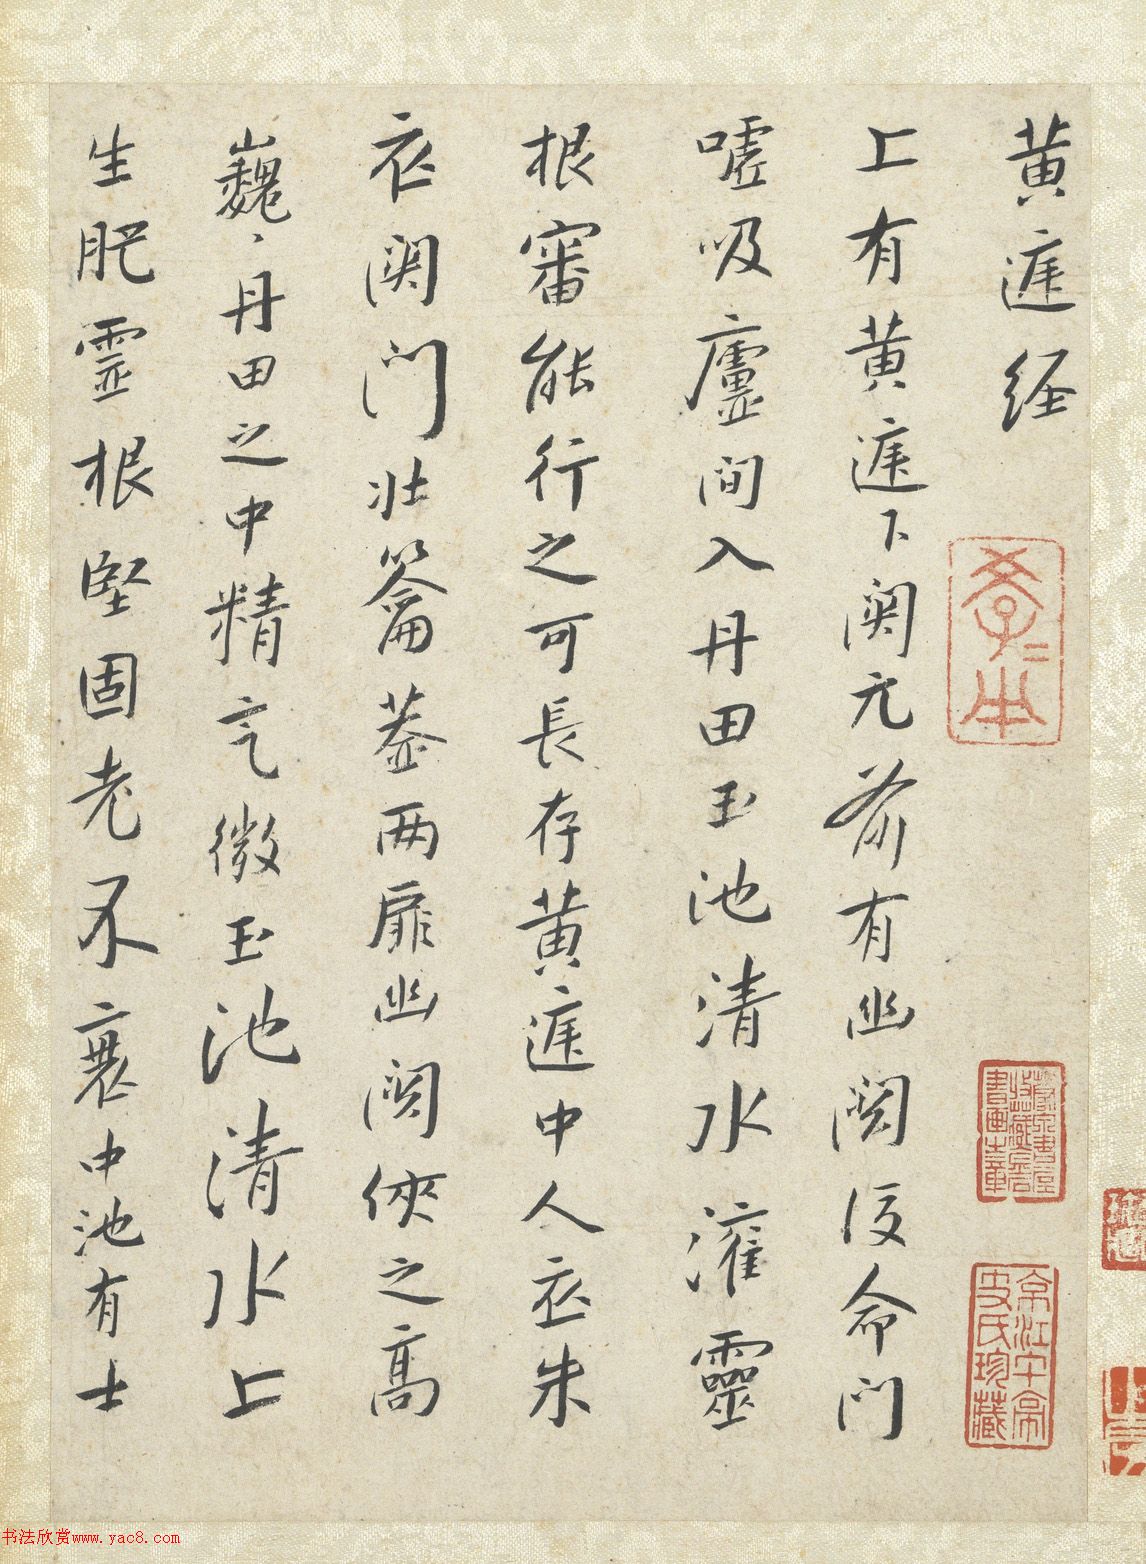 黄庭经
上有黄庭下関元前有幽阙後命門
嘘吸廬間入丹田玉池清水灌靈
根審能行之可長存黄庭中人衣朱
衣関門壮籥盖两扉幽阙侠之高
巍、丹田之中精气微玉池清水上
生肥霊根堅固老不衰中池有士
京江牛
史氏珍藏
书法欣赏www.yac8.com